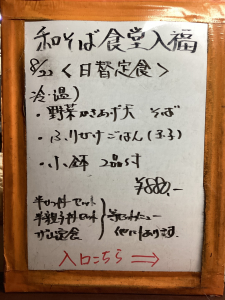 和そば食堂入福
8/22 <日替定食>
冷・温)
・野菜かきあげ天 そば
・ふりかけごはん(ミニ)
・小鉢 2品付
¥880.-
半かつ丼セット
半親子丼セット
定食
他にもあります。
入口こちら ⇒